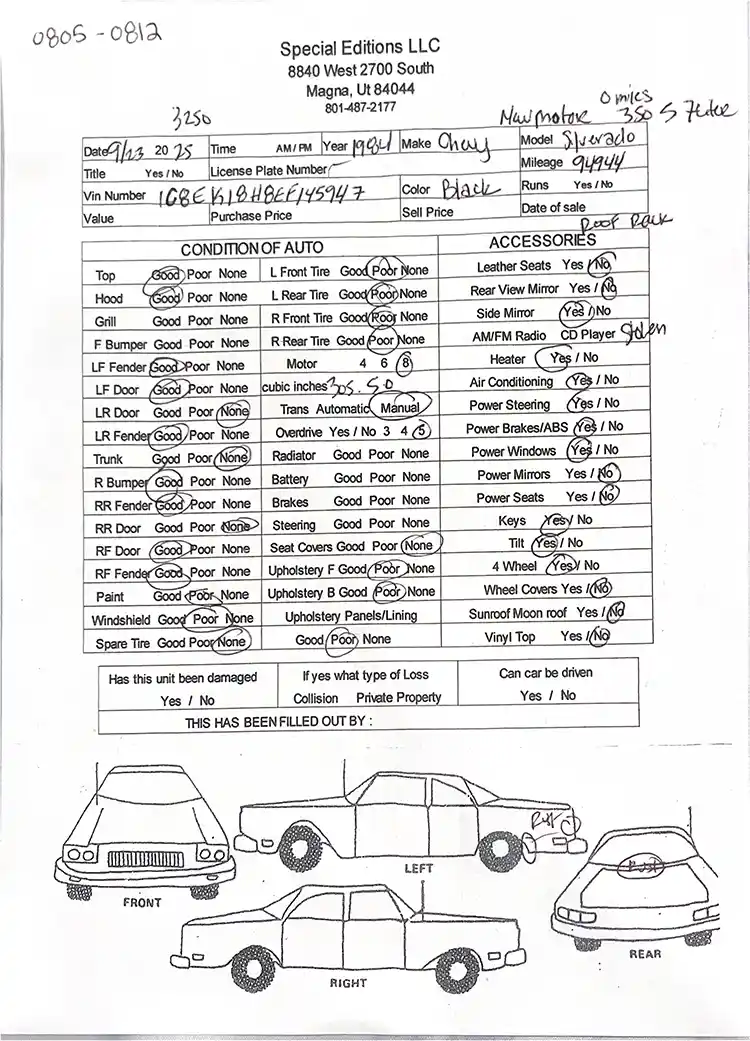 0805 - 0812
Special Editions LLC
8840 West 2700 South
Magna, Ut 84044
801-487-2177
3250
0 miles
New motor 350 5
Date 9/23 20 25 Time AM / PM Year 1984 Make Chevy Model Silverado
Title Yes / No License Plate Number Mileage 94944
Vin Number 1G8EK18H8EF145947 Color Black Runs Yes / No
Value Purchase Price Sell Price Date of sale
Roof Rack
CONDITION OF AUTO ACCESSORIES
Top Good Poor None L Front Tire Good Poor None Leather Seats Yes / No
Hood Good Poor None L Rear Tire Good Poor None Rear View Mirror Yes / No
Grill Good Poor None R Front Tire Good Poor None Side Mirror Yes / No
F Bumper Good Poor None R Rear Tire Good Poor None AM/FM Radio CD Player stolen
LF Fender Good Poor None Motor 4 6 8 Heater Yes / No
LF Door Good Poor None cubic inches 305. 5.0 Air Conditioning Yes / No
LR Door Good Poor None Trans Automatic Manual Power Steering Yes / No
LR Fender Good Poor None Overdrive Yes / No 3 4 5 Power Brakes/ABS Yes / No
Trunk Good Poor None Radiator Good Poor None Power Windows Yes / No
R Bumper Good Poor None Battery Good Poor None Power Mirrors Yes / No
RR Fender Good Poor None Brakes Good Poor None Power Seats Yes / No
RR Door Good Poor None Steering Good Poor None Keys Yes / No
RF Door Good Poor None Seat Covers Good Poor None Tilt Yes / No
RF Fender Good Poor None Upholstery F Good Poor None 4 Wheel Yes / No
Paint Good Poor None Upholstery B Good Poor None Wheel Covers Yes / No
Windshield Good Poor None Upholstery Panels/Lining Sunroof Moon roof Yes / No
Spare Tire Good Poor None Good Poor None Vinyl Top Yes / No
Has this unit been damaged If yes what type of Loss Can car be driven
Yes / No Collision Private Property Yes / No
THIS HAS BEEN FILLED OUT BY :
Rust
LEFT
Rust
FRONT
REAR
RIGHT